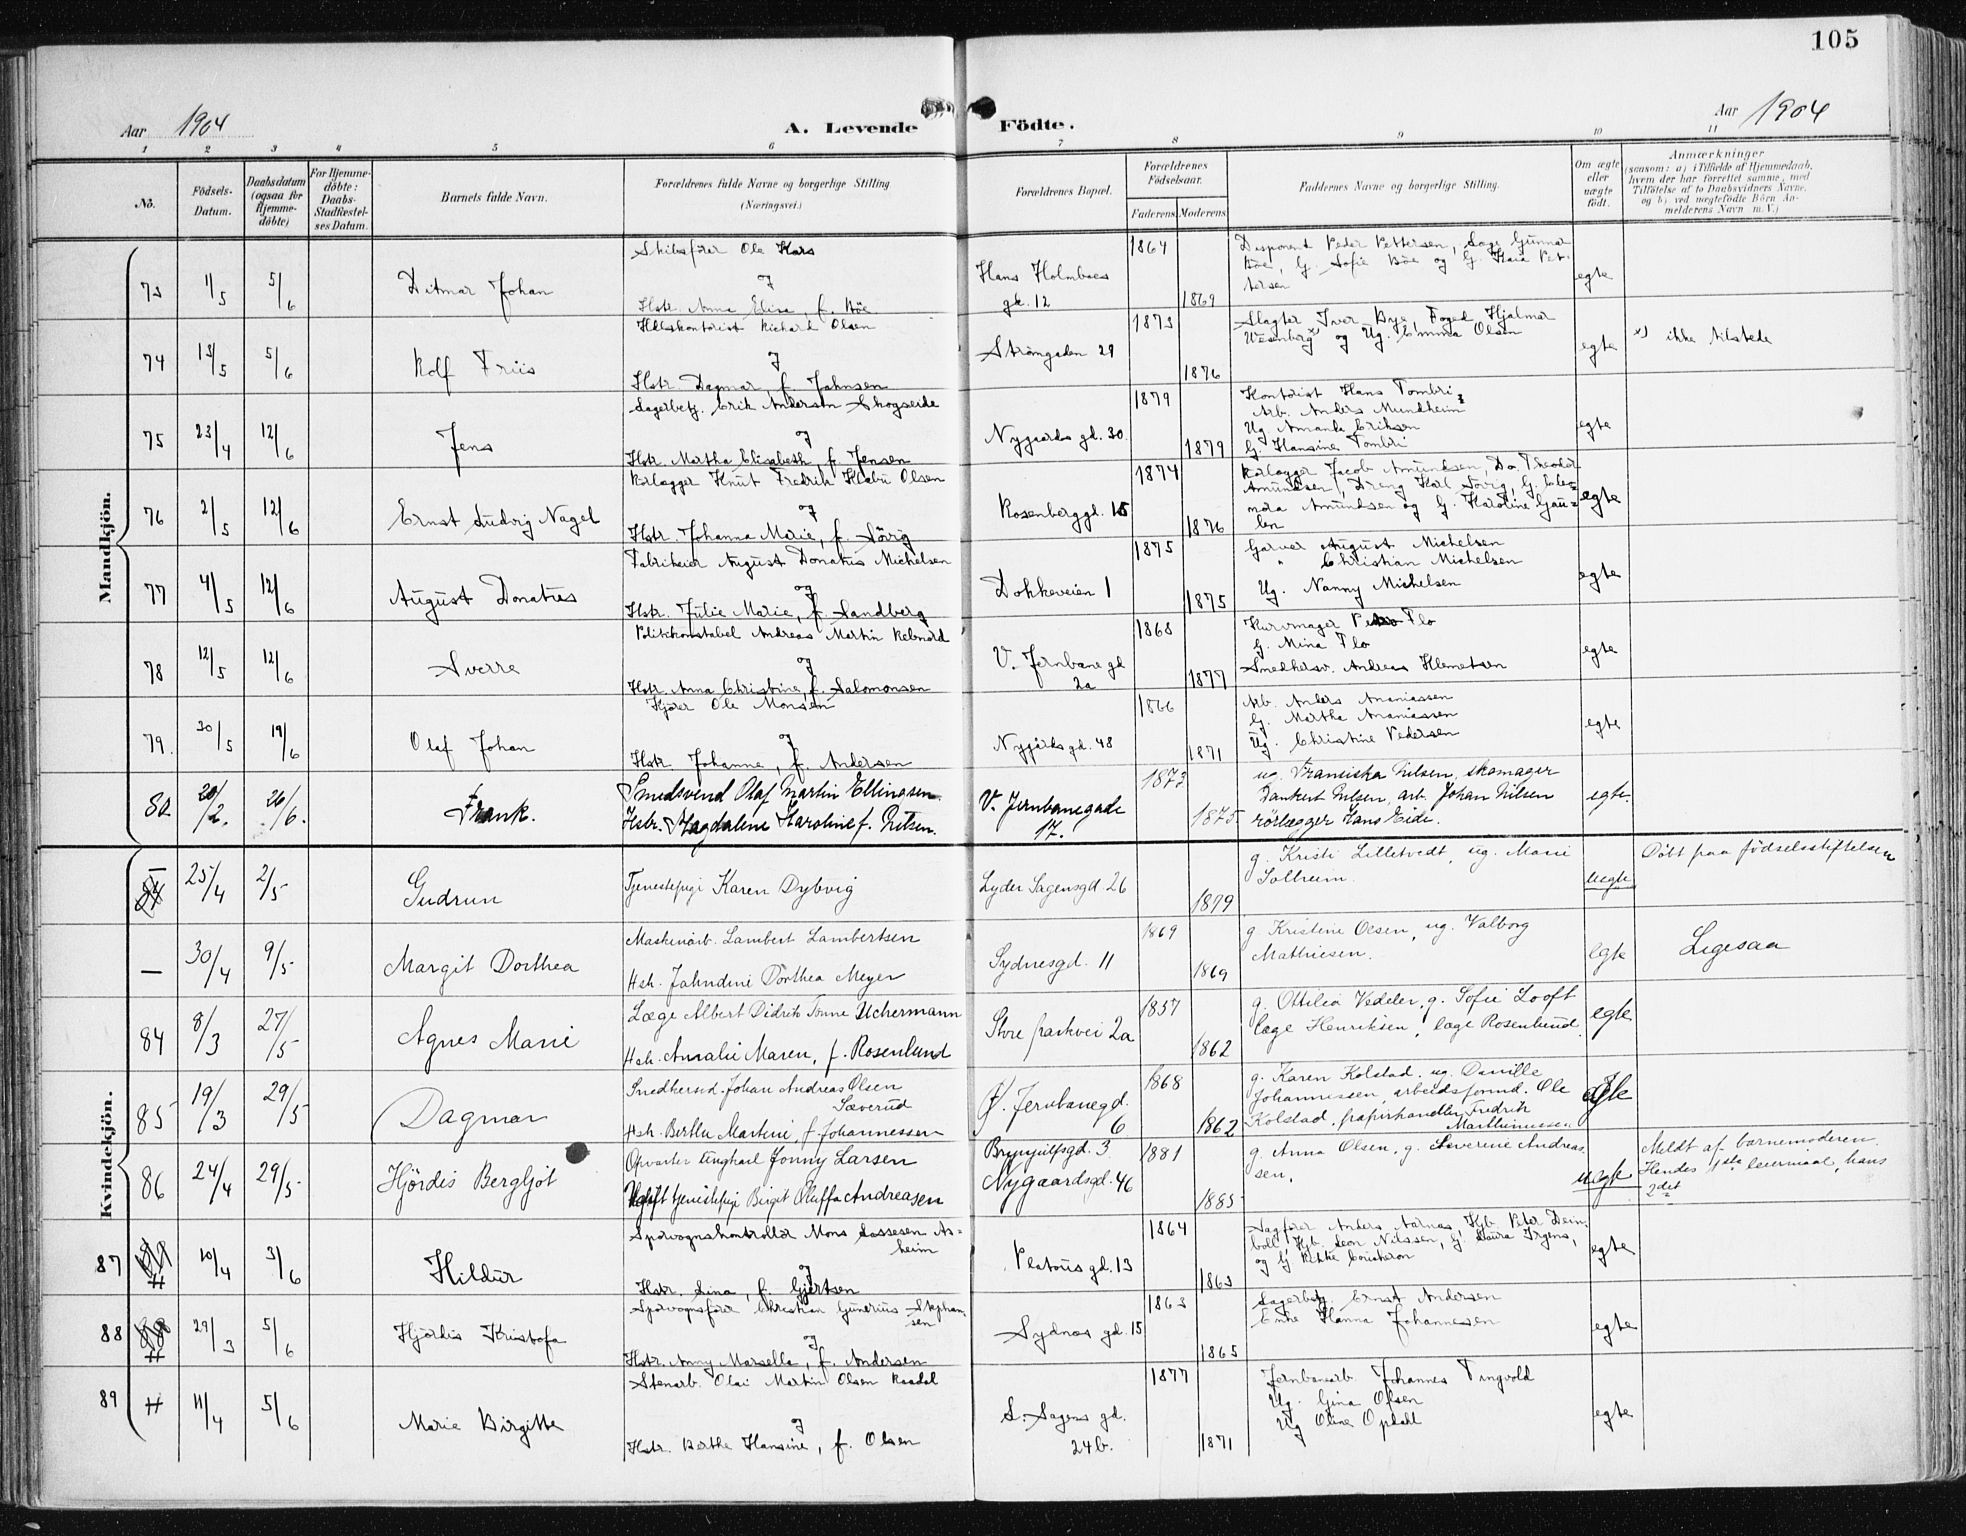 105
Aar 1904
A. Levende Födte.
Aar 1904
1 2 3 4 5 6 7 8 9 10 11
No.
Födsels-Datum.
Daabsdatum (ogsaa for Hjemme-döbte)
For Hjemme-döbte: Daabs-Stadfæstel-ses Datum.
Barnets fulde Navn.
Forældrenes fulde Navne og borgerlige Stilling (Næringsvei.)
Forældrenes Bopæl.
Forældrenes Födselsaar.
Faderens Moderens
Faddernes Navne og borgerlige Stilling.
Om ægte eller uægte födt.
Anmærkninger
(saasom: a) i Tilfælde af Hjemmedaab, hvem der har forrettet samme, med Tilföielse af to Daabsvidners Navne, og b) ved uægtefödte Börn An-melderens Navn m. V.)
Mandkjön.
73 1/5 5/6 Ditmar Johan
Skibsförer Ole Kars
og
Hstr. Anna Elisa, f. Böe
Hans Holmboes
gt. 12
1864 1869
Disponent Peder Pettersen, Sagf. Gunnar
Böe, G. Sofie Böe og G. Kaia Pet-
tersen
egte
74 13/5 5/6 Rolf Friis
Hdlskontorist Richard Olsen
og
Hstr. Dagmar, f. Jahnsen
Strömgaden 29
1873 1876
Slagter Iver Bye, Foged Hjalmar
Wesenberg x) og Ug. Emma Olsen
egte
x) ikke tilstede
75 23/4 12/6 Jens
Lagerbetj. Erik Andersen Skogseide
og
Hstr. Martha Elisabeth f. Jensen
Nygaards gd. 30
1879 1879
Kontorist Hans Tombri
Arb. Anders Mundheim
Ug. Amanda Eriksen
G. Hansine Tombri
egte
76 2/5 12/6 Ernst Ludvig Nagel
Rörlægger Knut Fredrik Klebü Olsen
og
Hstr. Johanna Marie, f. Sörig
Rosenberggd. 15
1874 1876
Rörlægger Jacob Amundsen, Do Theodor
Amundsen, Dreng Karl Sörig, G. Eleo-
nora Amundsen og G. Karoline Gau-
len
egte
77 4/5 12/6 August Donatus
Fabrikeier August Donatus Michelsen
og
Hstr. Julie Marie, f. Sandberg
Dokkeveien 1
1875 1875
Garver August Michelsen
" Christian Michelsen
Ug. Nanny Michelsen
egte
78 12/5 12/6 Sverre
Politikonstabel Andreas Martin Rebnord
og
Hstr. Anna Christine, f. Salomonsen
V. Jernbane gd
2a
1868 1877
Kurvmager Flo
G. Mina Flo
Snedkersv. Andreas Klemetsen
egte
79. 30/5 19/6 Olaf Johan
Kjörer Ole Monsen
og
Hstr. Johanne, f. Andersen
Nygårds gd. 48
1866 1871
Arb. Anders Ananiassen
G. Martha Ananiassen
Ug. Christine Pedersen
egte
80. 20/2. 26/6. Frank.
Smedsvend Olaf Martin Ellingsen.
Hstr. Magdalene Karoline f. Nilsen.
V. Jernbanegade
17.
1873 1875.
ug. Fransiska Nilsen, skomager
Dankert Nilsen, arb. Johan Nilsen
rörlægger Hans Eide.
egte.
Kvindekjön.
25/4 2/5 Gudrun
Tjenestepige Karen Dybvig
Lyder Sagensgd. 26
1879
g. Kristi Lilletvedt, ug. Marie
Solheim.
uegte
Döbt paa födselsstiftelsen
— 30/4 9/5 Margit Dorthea
Maskinarb. Lambert Lambertsen
Hstr. Jahndine Dorthea Meyer
Sydnesgd. 11
1869 1869
g. Kristine Olsen, ug. Valborg
Mathiesen.
egte
Ligesaa
84 8/3 27/5 Agnes Marie
Læge Albert Didrik Tonne Uchermann
Hstr. Amalie Maren, f. Rosenlund
Store parkvei 2a
1857 1862
g. Ottilia Vedeler, g. Sofie Looft
læge Henriksen, læge Rosenlund
egte
85 19/3 29/5 Dagmar
Snedkersvd. Johan Andreas Olsen
Sæverud
Hstr. Berthe Martine, f. Johannessen
Ø. Jernbanegd.
6
1868 1862
g. Karen Kolstad. ug. Danille
Johannessen, arbeidsformd. Ole
Kolstad, papirhandler Fredrik
Marthinussen
egte
86 24/4 29/5 Hjördis Bergljot
Opvarter ungkarl Jonny Larsen
Ugift tjenestepige Birgit Oluffa Andreasen
Brynjulfsgd. 3
Nygaardsgd. 46
1881 1885
g. Anna Olsen, g. Severine Andreas-
sen.
uegte
Meldt af barnemoderen.
Hendes 1ste leiermaal, hans
2det
87 10/4 3/6 Hildur
Sporvognskontrollör Mons Lassesen As-
heim
og
Hstr. Lina, f. Gjertsen
Platous gd. 13
1864 1863
Sagförer Anders Aarnæs, Hjb. Peter Dein-
boll, Hjb. Leon Nilssen, G. Laura Irgens,
og G. Rikke
egte
88 29/3 5/6 Hjördis Kristofa
Sporvognsförer Christian Gunerius Stephan-
sen
og
Hstr. Anny Marsella, f. Andersen
Sydnes gd. 15
1863 1865
Lagerbetj. Ernst Andersen
Enke Hanna Johannesen
egte
89 11/4 5/6 Marie Birgitte
Stenarb. Olai Martin Olsen Raadal
og
Hstr. Berthe Hansine, f. Olsen
L. Sagens gd.
24b.
1877 1871
Jernbanearb. Johannes Tingvold
Ug. Gina Olsen
Ug Oline Opdahl
egte